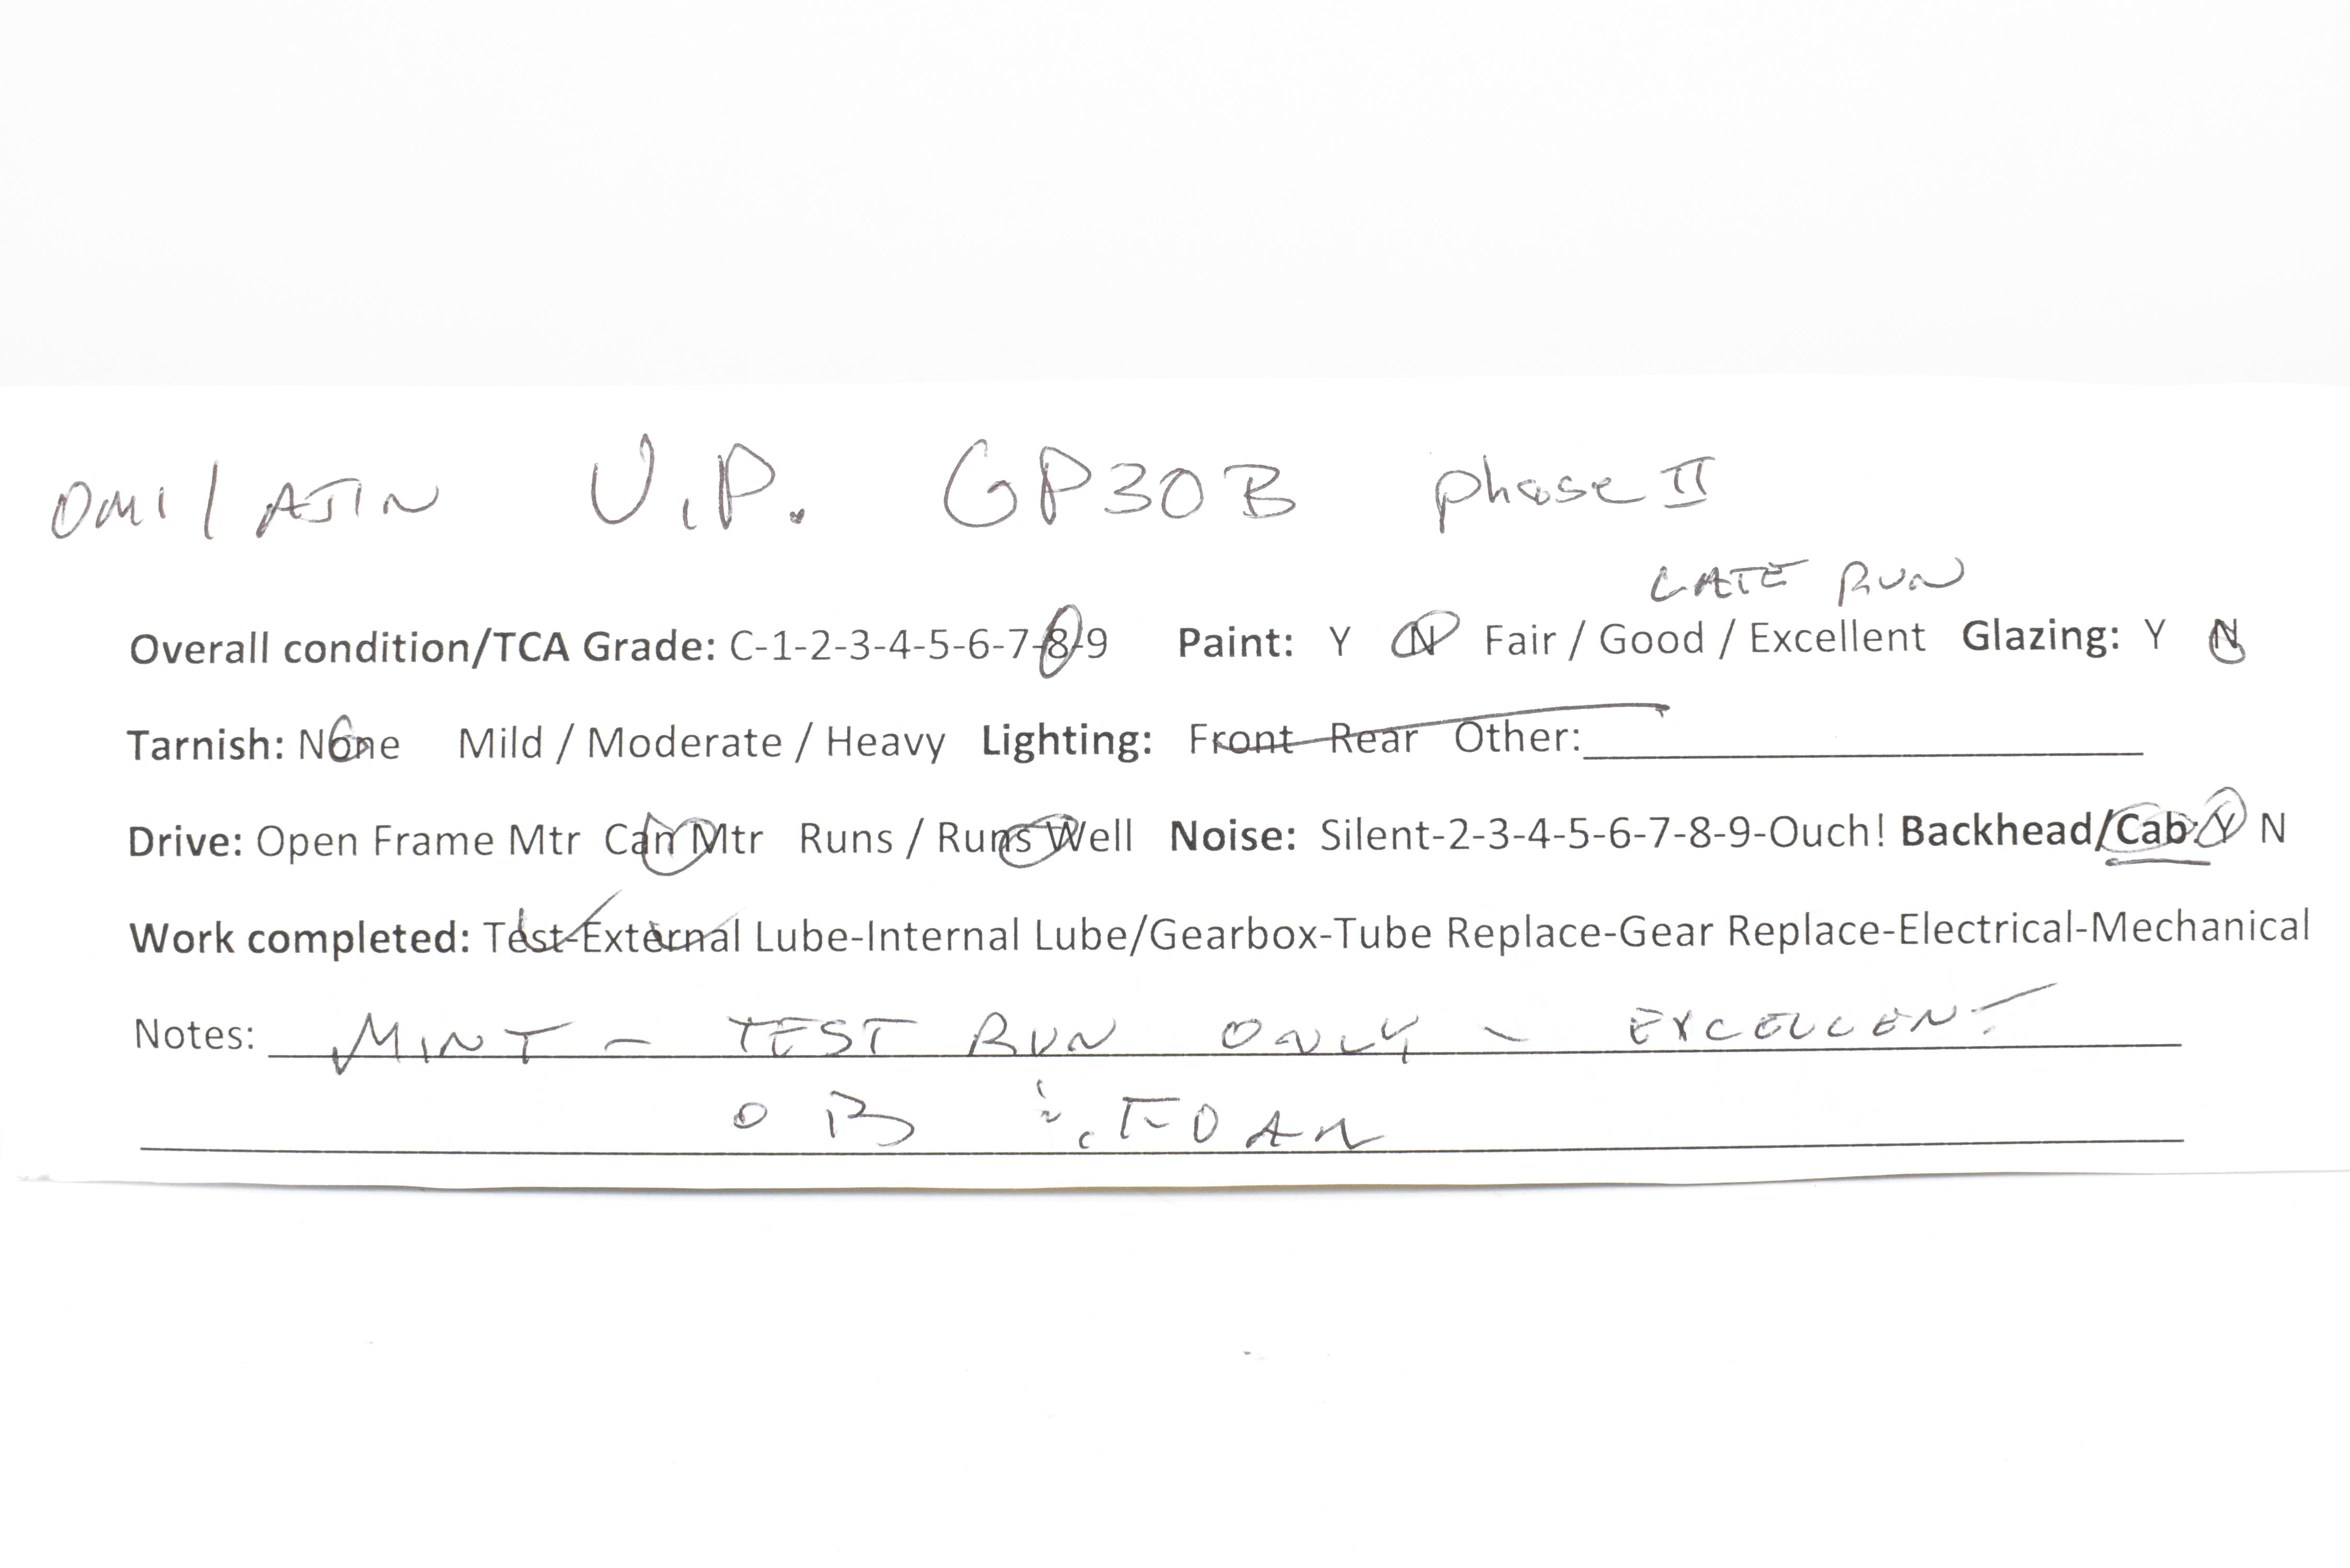 OMI / AJIN U.P. GP30B phase II
LATE RUN
Overall condition/TCA Grade: C-1-2-3-4-5-6-7-8-9 Paint: Y N Fair / Good / Excellent Glazing: Y N
Tarnish: None Mild / Moderate / Heavy Lighting: Front Rear Other:
Drive: Open Frame Mtr Can Mtr Runs / Runs Well Noise: Silent-2-3-4-5-6-7-8-9-Ouch! Backhead/Cab: Y N
Work completed: Test-External Lube-Internal Lube/Gearbox-Tube Replace-Gear Replace-Electrical-Mechanical
Notes: MINT - TEST RUN ONLY - EXCELLENT
OB